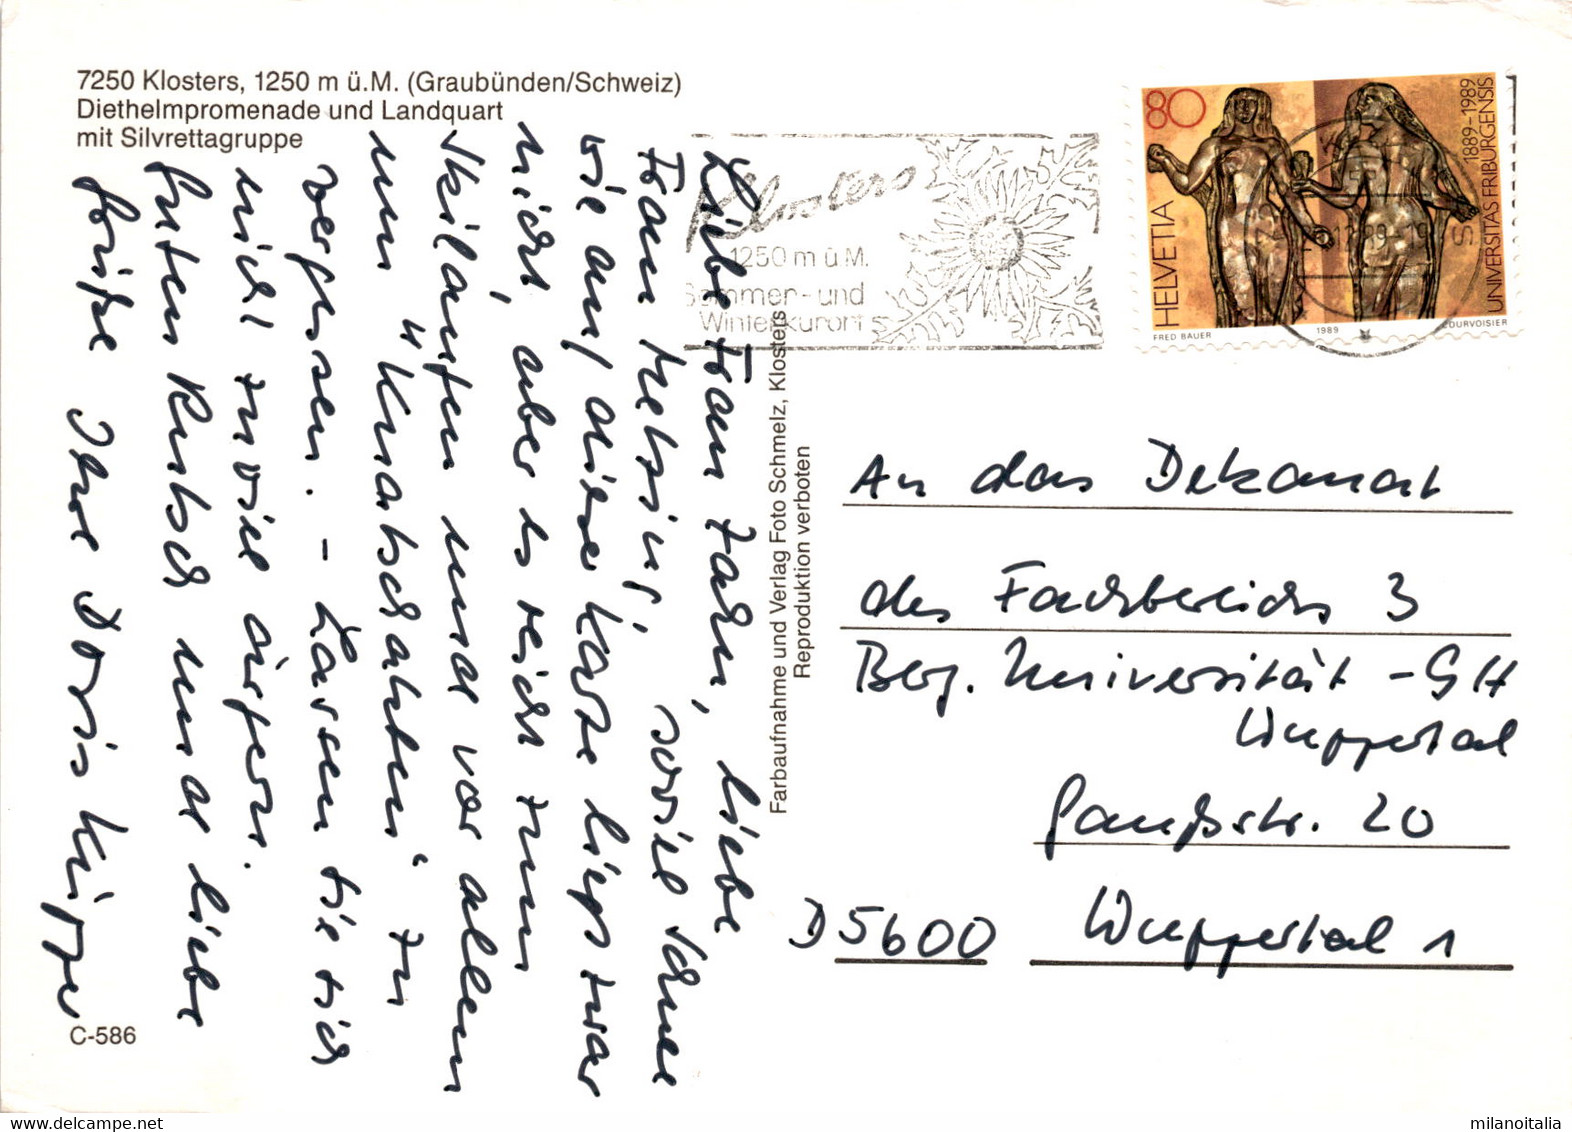 7250 Klosters, 1250 m ü.M. (Graubünden/Schweiz)
Diethelmpromenade und Landquart
mit Silvrettagruppe
Klosters
1250 m ü.M.
Sommer- und
Winterkurort
80
HELVETIA
UNIVERSITAS FRIBURGENSIS
1889-1989
FRED BAUER
1989
COURVOISIER
Liebe Frau Zahn, liebe
Frau Melsius, soviel Schnee
wie auf dieser Karte liegt zwar
nicht, aber es reicht zum
Skilaufen und vor allem
um "Knatschakten" zu
vergessen. - Lassen Sie sich
nicht zuviel ärgern.
Guten Rutsch und liebe
Grüße Ihre Doris Küpper
Farbaufnahme und Verlag Foto Schmelz, Klosters
Reproduktion verboten
An das Dekanat
des Fachbereichs 3
Berg. Universität - GH
Wuppertal
Gaußstr. 20
D 5600 Wuppertal 1
C-586
milanoitalia